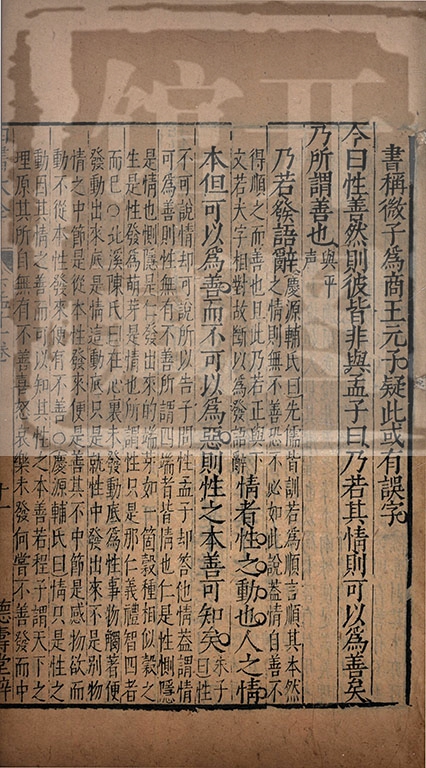 書稱微子爲商王元子疑此或有誤字
今曰性善然則彼皆非與孟子曰乃若其情則可以爲善矣
乃所謂善也與平聲
乃若發語辭慶源輔氏曰先儒皆訓若爲順言順其本然
之情則無不善恐不必如此說蓋情自善不
得順之而善也且此乃若正與下
文若大字相對故斷以爲發語辭情者性之動也人之情
本但可以爲善而不可以爲惡則性之本善可知矣朱子曰性
不可說情却可說所以告子問性孟子却答他情蓋謂情
可爲善則性無有不善所謂四端者皆情也仁是性惻隱
是情也惻隱是仁發出來的端芽如一箇穀種相似穀之
生是性發爲萌芽是情也所謂性只是那仁義禮智四者
而已○北溪陳氏曰在心裏未發動底爲性事物觸著便
發動出來底是情這動底只是就性中發出來不是別物
情之中節是從本性發來便是善其不中節是感物欲而
動不從本性發來便有不善○慶源輔氏曰情只是性之
動因其情之善而可以知其性之本善若程子謂天下之
理原其所自無有不善喜怒哀樂未發何嘗不善發而中
德壽堂梓